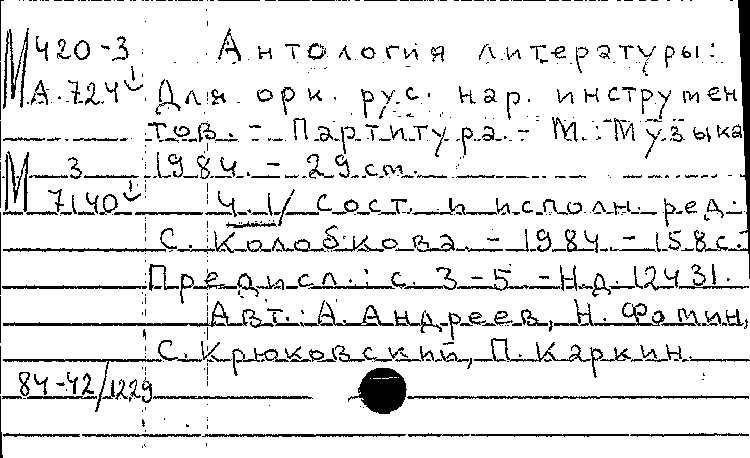 М 420-3 Антология литературы:
А.724 Для орк. рус. нар. инструмен
тов. - Партитура. - М.: Музыка
М 3 1984. - 29 cm.
7140 Ч.1/ Сост. и исполн. ред.
С. Колобкова. - 1984. - 158 с.-
Предисл.: с. 3-5 - Н.д. 12431.
Авт.: А. Андреев, Н. Фомин,
С. Крюковский, П. Каркин.
84-42/1229